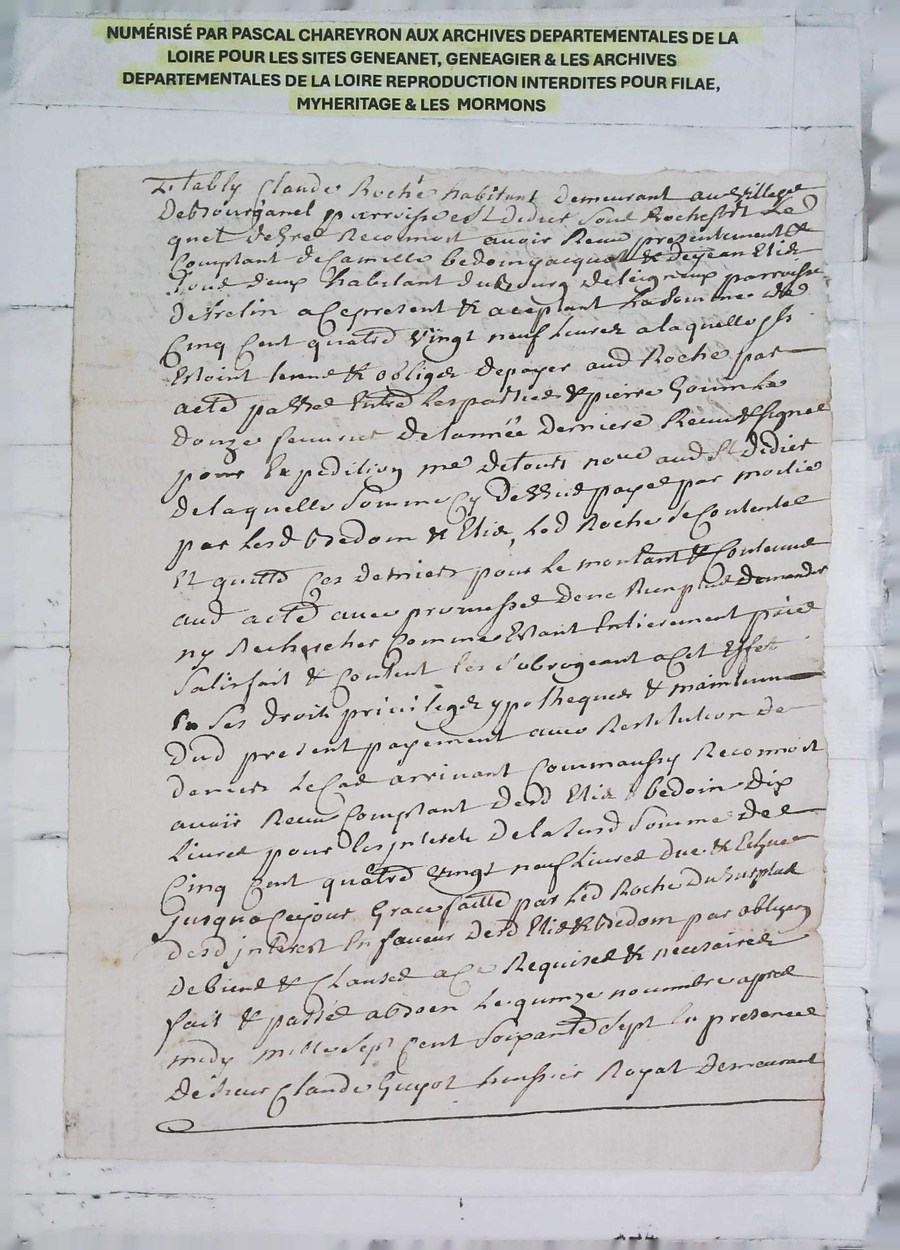 NUMÉRISÉ PAR PASCAL CHAREYRON AUX ARCHIVES DEPARTEMENTALES DE LA
LOIRE POUR LES SITES GENEANET, GENEAGIER & LES ARCHIVES
DEPARTEMENTALES DE LA LOIRE REPRODUCTION INTERDITES POUR FILAE,
MYHERITAGE & LES MORMONS
Etably Claude Roche habitant demeurant au village
parroisse st didier sous Rochefort Le
quel de gre Reconnoit avoir Receu presentement &
Comptant de Camille bedoin & de jean Elie
tous deux habitant du Bourg de leigneux parroisse
de trelin a ce present & aceptant La somme de
Cinq Cent quatre vingt neuf Livres a laquelle ils
Estoint tenus & obligez de payer aud Roche par
acte passé Entre Les parties & pierre Le
douze de l'année derniere Receu & signé
pour Expedition me detours no.re aud St didier
de laquelle somme Cy dessus payee par moitie
par Lesd bedoin & Elie, Led Roche se Contente
Et quitte Ces derniers pour le montant & Contenue
aud acte avec promesse de ne Rien plus demander
ny Rechercher Comme Estant Entierement paié
satisfait & Content les subrogeant a Cet Effet
En ses droits privileges ypotheques & maintenue
dud present payement avec Restitution de
deniers le Cas arrivant Comm'aussy Reconnoit
avoir Receu Comptant desd Elie & bedoin dix
Livres pour les interets de la susd somme de
Cinq Cent quatre vingt neuf Livres due & Echue
jusqu'a Ce jour Grace faitte par Led Roche du surplus
desd interest En faveur desd Elie & bedoin par obligon
de biens & Clauses a Ce Requises & necessaires
fait & passé a boen Le quinze novembre apres
midy mille sept Cent soixante sept En presence
de sieur Claude Guyot huissier Royal demeurant